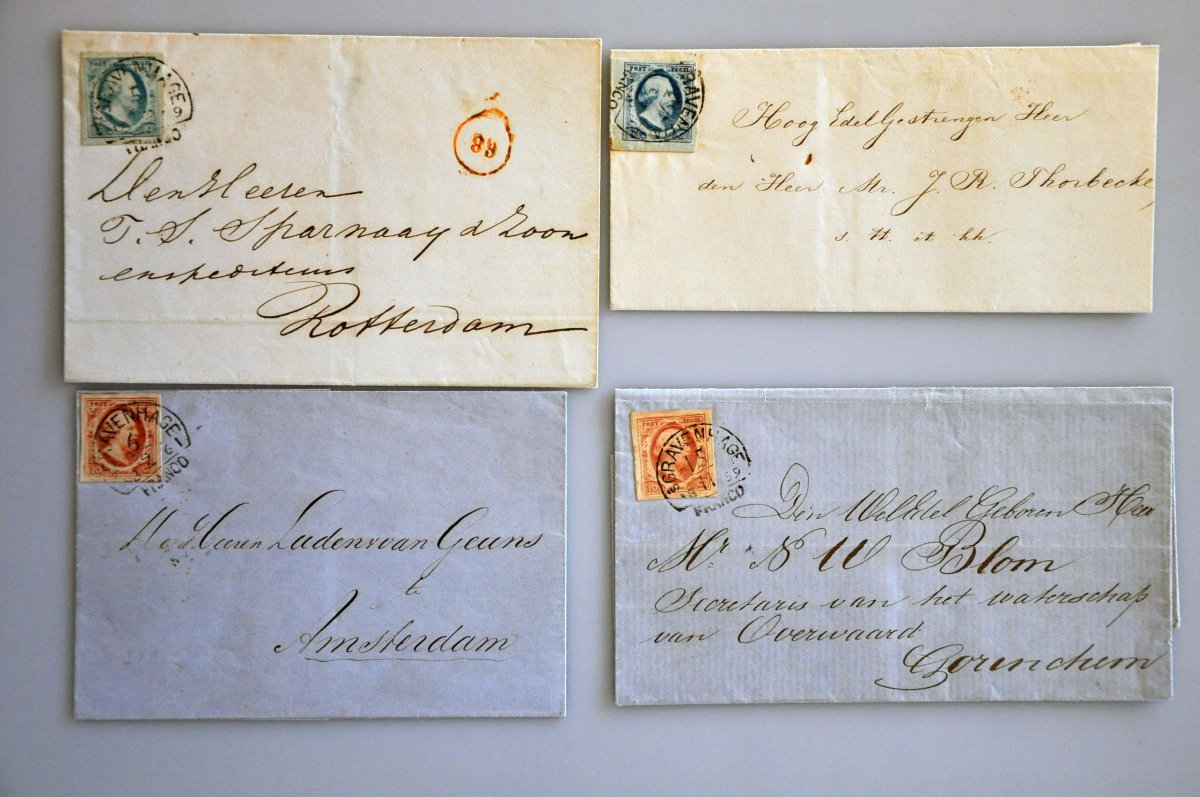 GRAVENHAGE
FRANCO
89
Den Heeren
T. S. Sparnaay & Zoon
expediteurs
Rotterdam
POST ZEGEL
GRAVEN
Hoog Edel Gestrengen Heer
den Heer Mr. J. R. Thorbecke,
POST
AVENHAGE
5
FRANCO
Heeren Luden & van Geuns
te
Amsterdam
POST ZEGEL
GRAVENHAGE
FRANCO
Den WelEdel Geboren Heer
Mr. N W Blom
Secretaris van het waterschap
van Overwaard
Gorinchem